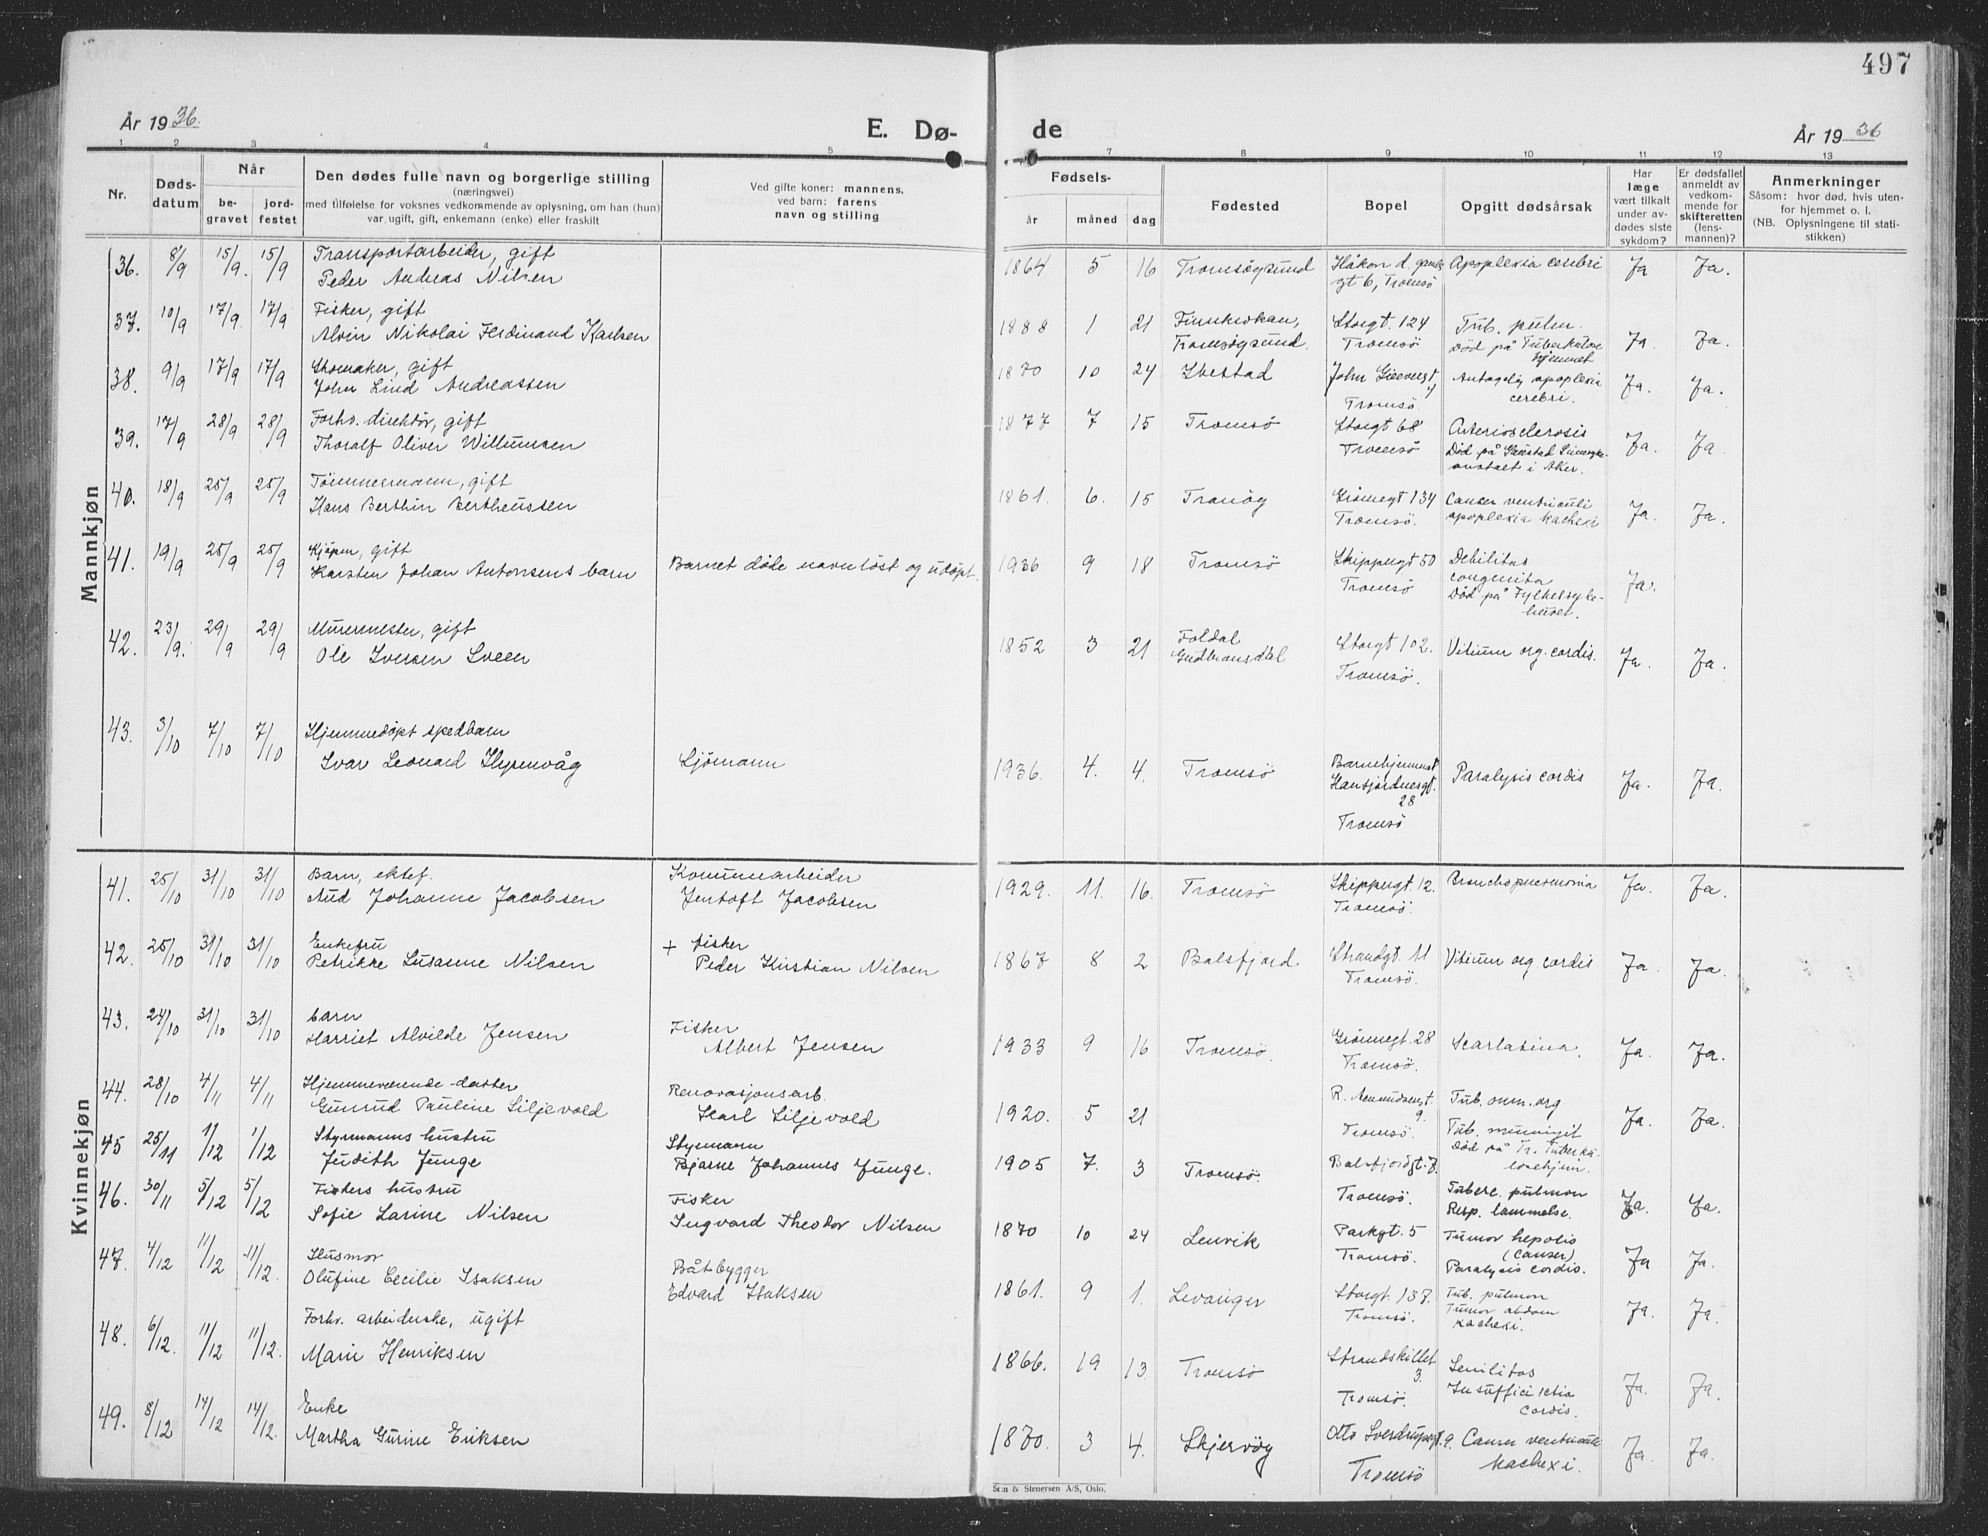 497
År 1936.
E. Dø-
de
År 1936
1 2 3 4 5 7 8 9 10 11 12 13
Nr.
Døds-
datum
Når
be-
gravet
jord-
festet
Den dødes fulle navn og borgerlige stilling
(næringsvei)
med tilføielse for voksnes vedkommende av oplysning, om han (hun)
var ugift, gift, enkemann (enke) eller fraskilt
Ved gifte koner: mannens,
ved barn: farens
navn og stilling
Fødsels-
år måned dag
Fødested
Bopel
Opgitt dødsårsak
Har
læge
vært tilkalt
under av-
dødes siste
sykdom?
Er dødsfallet
anmeldt av
vedkom-
mende for
skifteretten
(lens-
mannen)?
Anmerkninger
Såsom: hvor død, hvis uten-
for hjemmet o. l.
(NB. Oplysningene til stati-
stikken)
Mannkjøn
36. 8/9 15/9. 15/9 Transportarbeider, gift
Peder Andreas Nilsen
1864 5 16 Tromsøysund Håkon d. gamles
gt 6, Tromsö Apoplexia cerebri Ja Ja.
37. 10/9 17/9 17/9 Fisker, gift
Alvin Nikolai Ferdinand Karlsen
1888 1 21 Finnkrokan,
Tromsøysund. Storgt. 124
Tromsö Tub. pulm.
Död på Tuberkulose
hjemmet Ja. Ja.
38. 9/9 17/9 17/9 Skomaker, gift
Johan Lind Andreassen
1870 10 24 Ibestad John Giæversgt
4
Tromsö. Antagelig apoplexia
cerebri. Ja. Ja.
39. 17/9 28/9 28/9 Forhv. direktör, gift
Thoralf Oliver Willumsen
1877 7 15 Tromsö Storgt 68
Tromsö Arteriosclerosis
Död på Gaustad Sinnsyke-
anstalt i Aker. Ja. Ja
40. 18/9 25/9 25/9 Tömmermann, gift
Hans Berthin Bertheussen
1861. 6. 15 Tranöy Grönnegt 134
Tromsö. Cancer ventriculi
apoplexia kachexi Ja. Ja.
41. 19/9 25/9 25/9 Kjöpm, gift
Karsten Johan Antonsens barn Barnet döde navnlöst og udöpt.
1936 9 18 Tromsö Skippergt 50
Tromsö Debilitas
congenita
Död på Fylkessyke-
huset. Ja.
42. 23/9. 29/9 29/9 Murermester, gift
Ole Iversen Sveen
1852 3 21 Foldal
Gudbransdal Storgt 102.
Tromsö. Vitium org. cordis. Ja. Ja.
43. 3/10 7/10 7/10 Hjemmedöpt spedbarn
Ivar Leonard Skjervåg Sjömann
1936. 4. 4. Tromsö Barnehjemmet
Hansjordnesgt.
28
Tromsö Paralysis cordis Ja. Ja.
Kvinnekjøn
41. 25/10 31/10 31/10 Barn, ektef.
Aud Johanne Jacobsen Kommunearbeider
Jentoft Jacobsen
1929. 11. 16. Tromsö Skippergt. 12.
Tromsö. Bronchopneumonia Ja. Ja.
42. 25/10 31/10 31/10 Enkefru
Petrikke Susanne Nilsen + fisker
Peder Kristian Nilsen
1867 8 2 Balsfjord Strandgt. 11
Tromsö. Vitium org cordis Ja. Ja.
43. 24/10 31/10 31/10 barn
Harriet Alvilde Jensen Fisker
Albert Jensen
1933 9 16 Tromsö. Grönnegt. 28
Tromsö. Scarlatina. Ja. Ja.
44. 28/10 4/11 4/11 Hjemmeværende datter
Gunrud Pauline Liljevold Renovasjonsarb.
Karl Liljevold
1920. 5 21 R. Amundsensgt.
9.
Tromsö. Tub. omn. org
Tub. meningit
Död på Tr. Tuberku-
losehjem. Ja. Ja.
45 25/11 1/12 1/12 Styrmanns hustru
Judith Junge Styrmann
Bjarne Johannes Junge.
1905 7. 3 Tromsö. Balsfjordgt. 7.
Tromsö. Tuberc. pulmon
Resp. lammelse. Ja. Ja.
46. 30/11 5/12 5/12 Fiskers hustru
Sofie Larine Nilsen Fisker
Ingvard Theodor Nilsen
1870 10 24 Lenvik Parkgt. 5
Tromsö. Tumor hepatis
(Canser)
Paralysis cordis. Ja Ja.
47. 4/12 11/12 11/12. Husmor
Olufine Cecilie Isaksen Båtbygger
Edvard Isaksen
1861. 9 1. Levanger Storgt. 137.
Tromsö. Tub. pulmon
Tumor abdom
kachexi. Ja. Ja.
48. 6/12. 11/12 11/12. Forhv. arbeiderske, ugift
Marie Henriksen
1866. 19 13 Tromsö Strandskillet
3.
Tromsö. Senilitas
Insufficientia
cordis. Ja. Ja.
49. 8/12 14/12 14/12. Enke
Martha Gurine Eriksen
1870. 3 4. Skjervöy Otto Sverdrupsgt. 9.
Tromsö Canser ventriculi
kachexi. Ja. Ja.
& Stenersen A/S, Oslo.